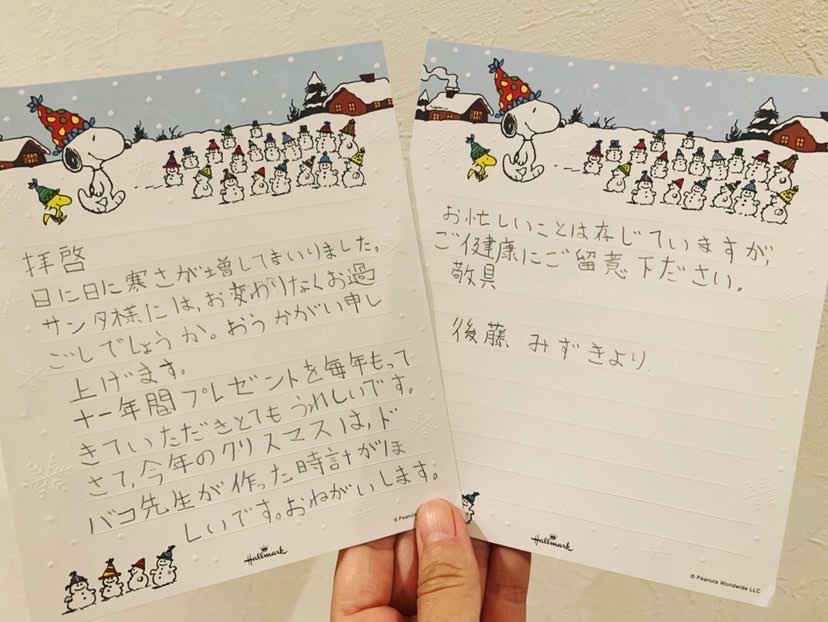 拝啓
日に日に寒さが増してまいりました。
サンタ様には、お変わりなくお過
ごしでしょうか。おうかがい申し
上げます。
十一年間プレゼントを毎年もって
きていただきとてもうれしいです。
さて、今年のクリスマスは、ド
バコ先生が作った時計がほ
しいです。おねがいします。
© Peanuts
Hallmark
お忙しいことは存じていますが、
ご健康にご留意下ださい。
敬具
後藤 みずきより
Hallmark
© Peanuts Worldwide LLC